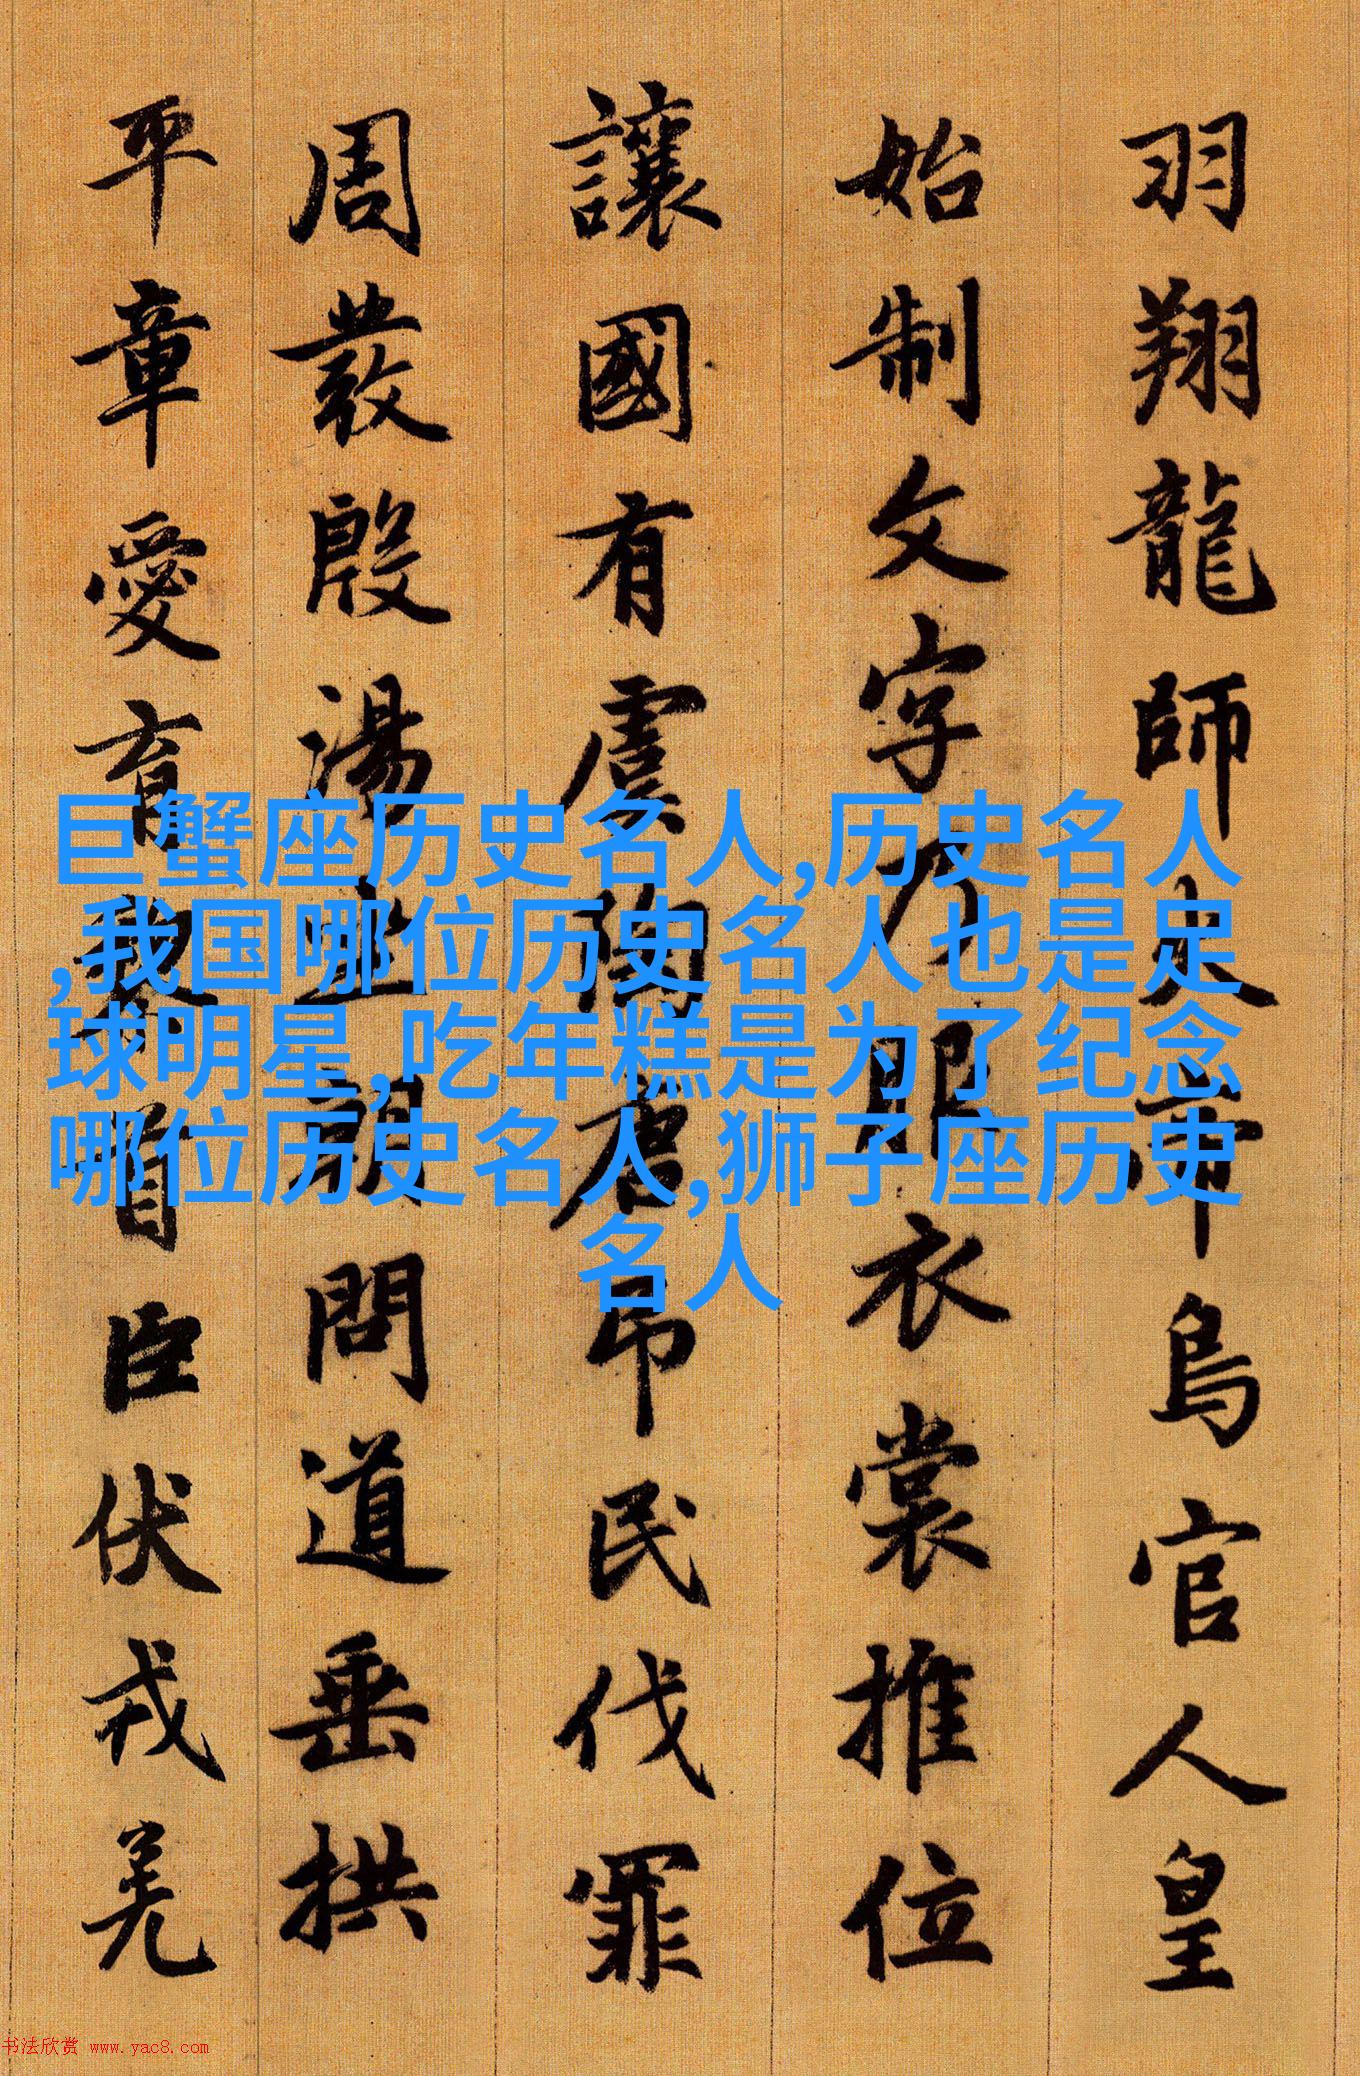 羽翔龍師火帝鳥官人皇
始制文字乃服衣裳推位
讓國有虞陶唐吊民伐罪
周發殷湯坐朝問道垂拱
平章愛育黎首臣伏戎羌
巨蟹座历史名人,历史名人
,我国哪位历史名人也是足
球明星,吃年糕是为了纪念
哪位历史名人,狮子座历史
名人
书法欣赏 www.yac8.com